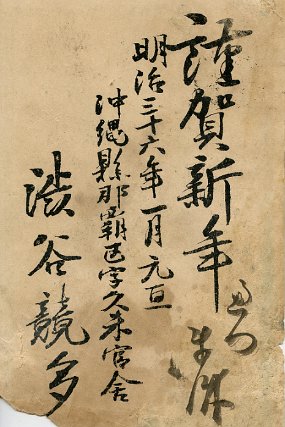 謹賀新年
明治三十六年一月元旦
沖縄縣那覇区字久米官舍
澁谷競多